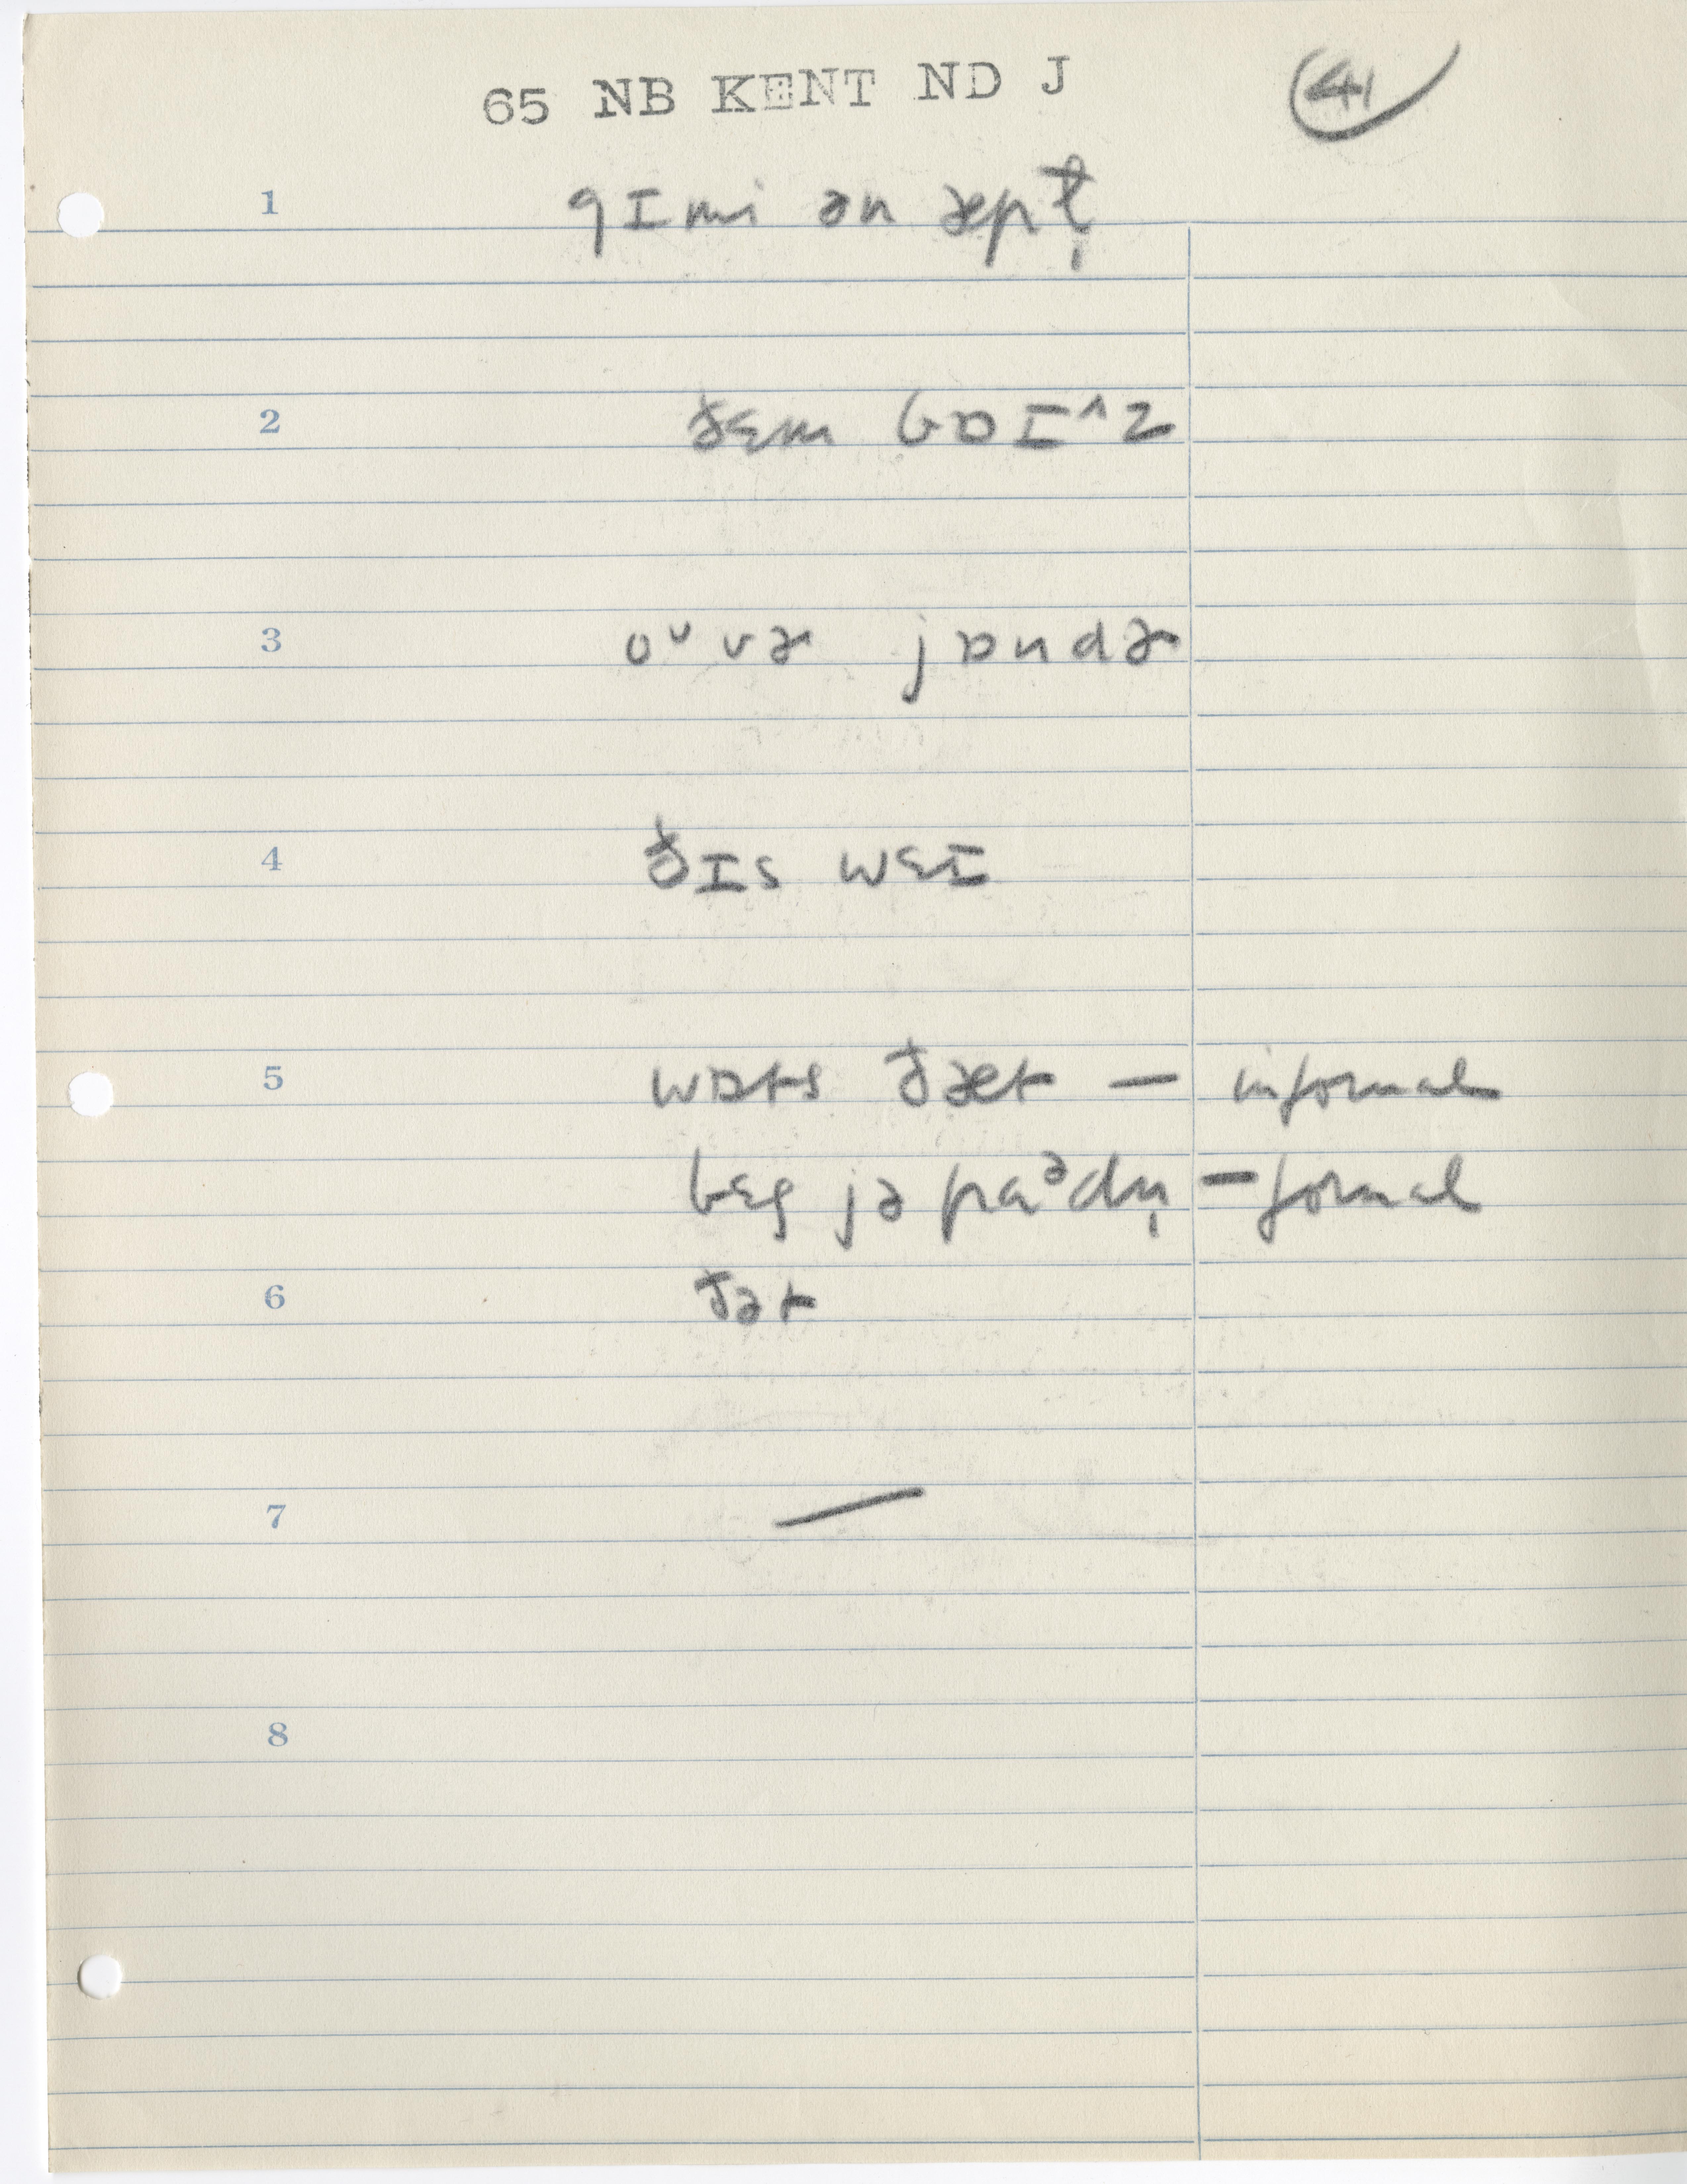 65 NB KENT ND J
41
1 gɪmi ən æpl̩
2 ðɛm bɒɪ^z
3 oᵘvɚ jɒndɚ
4 ðɪs wɛɪ
5 wɒts ðæt — informal
bɛg jə pɑᵊdn̩ — formal
6 ðət
7 —
8